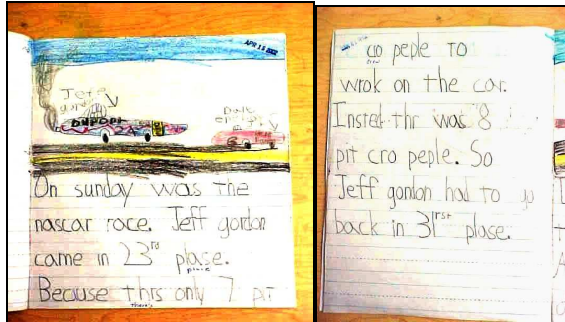 APR 15 2002
Jeff
DUPONT
24
Dale
On sunday was the
nascar race. Jeff gordon
came in 23rd plase.
place
Because thrs only 7 pit
there's
cro peple to
wrok on the car.
Insted thr was 8
pit cro peple. So
Jeff gordon had to go
back in 31rst plase.